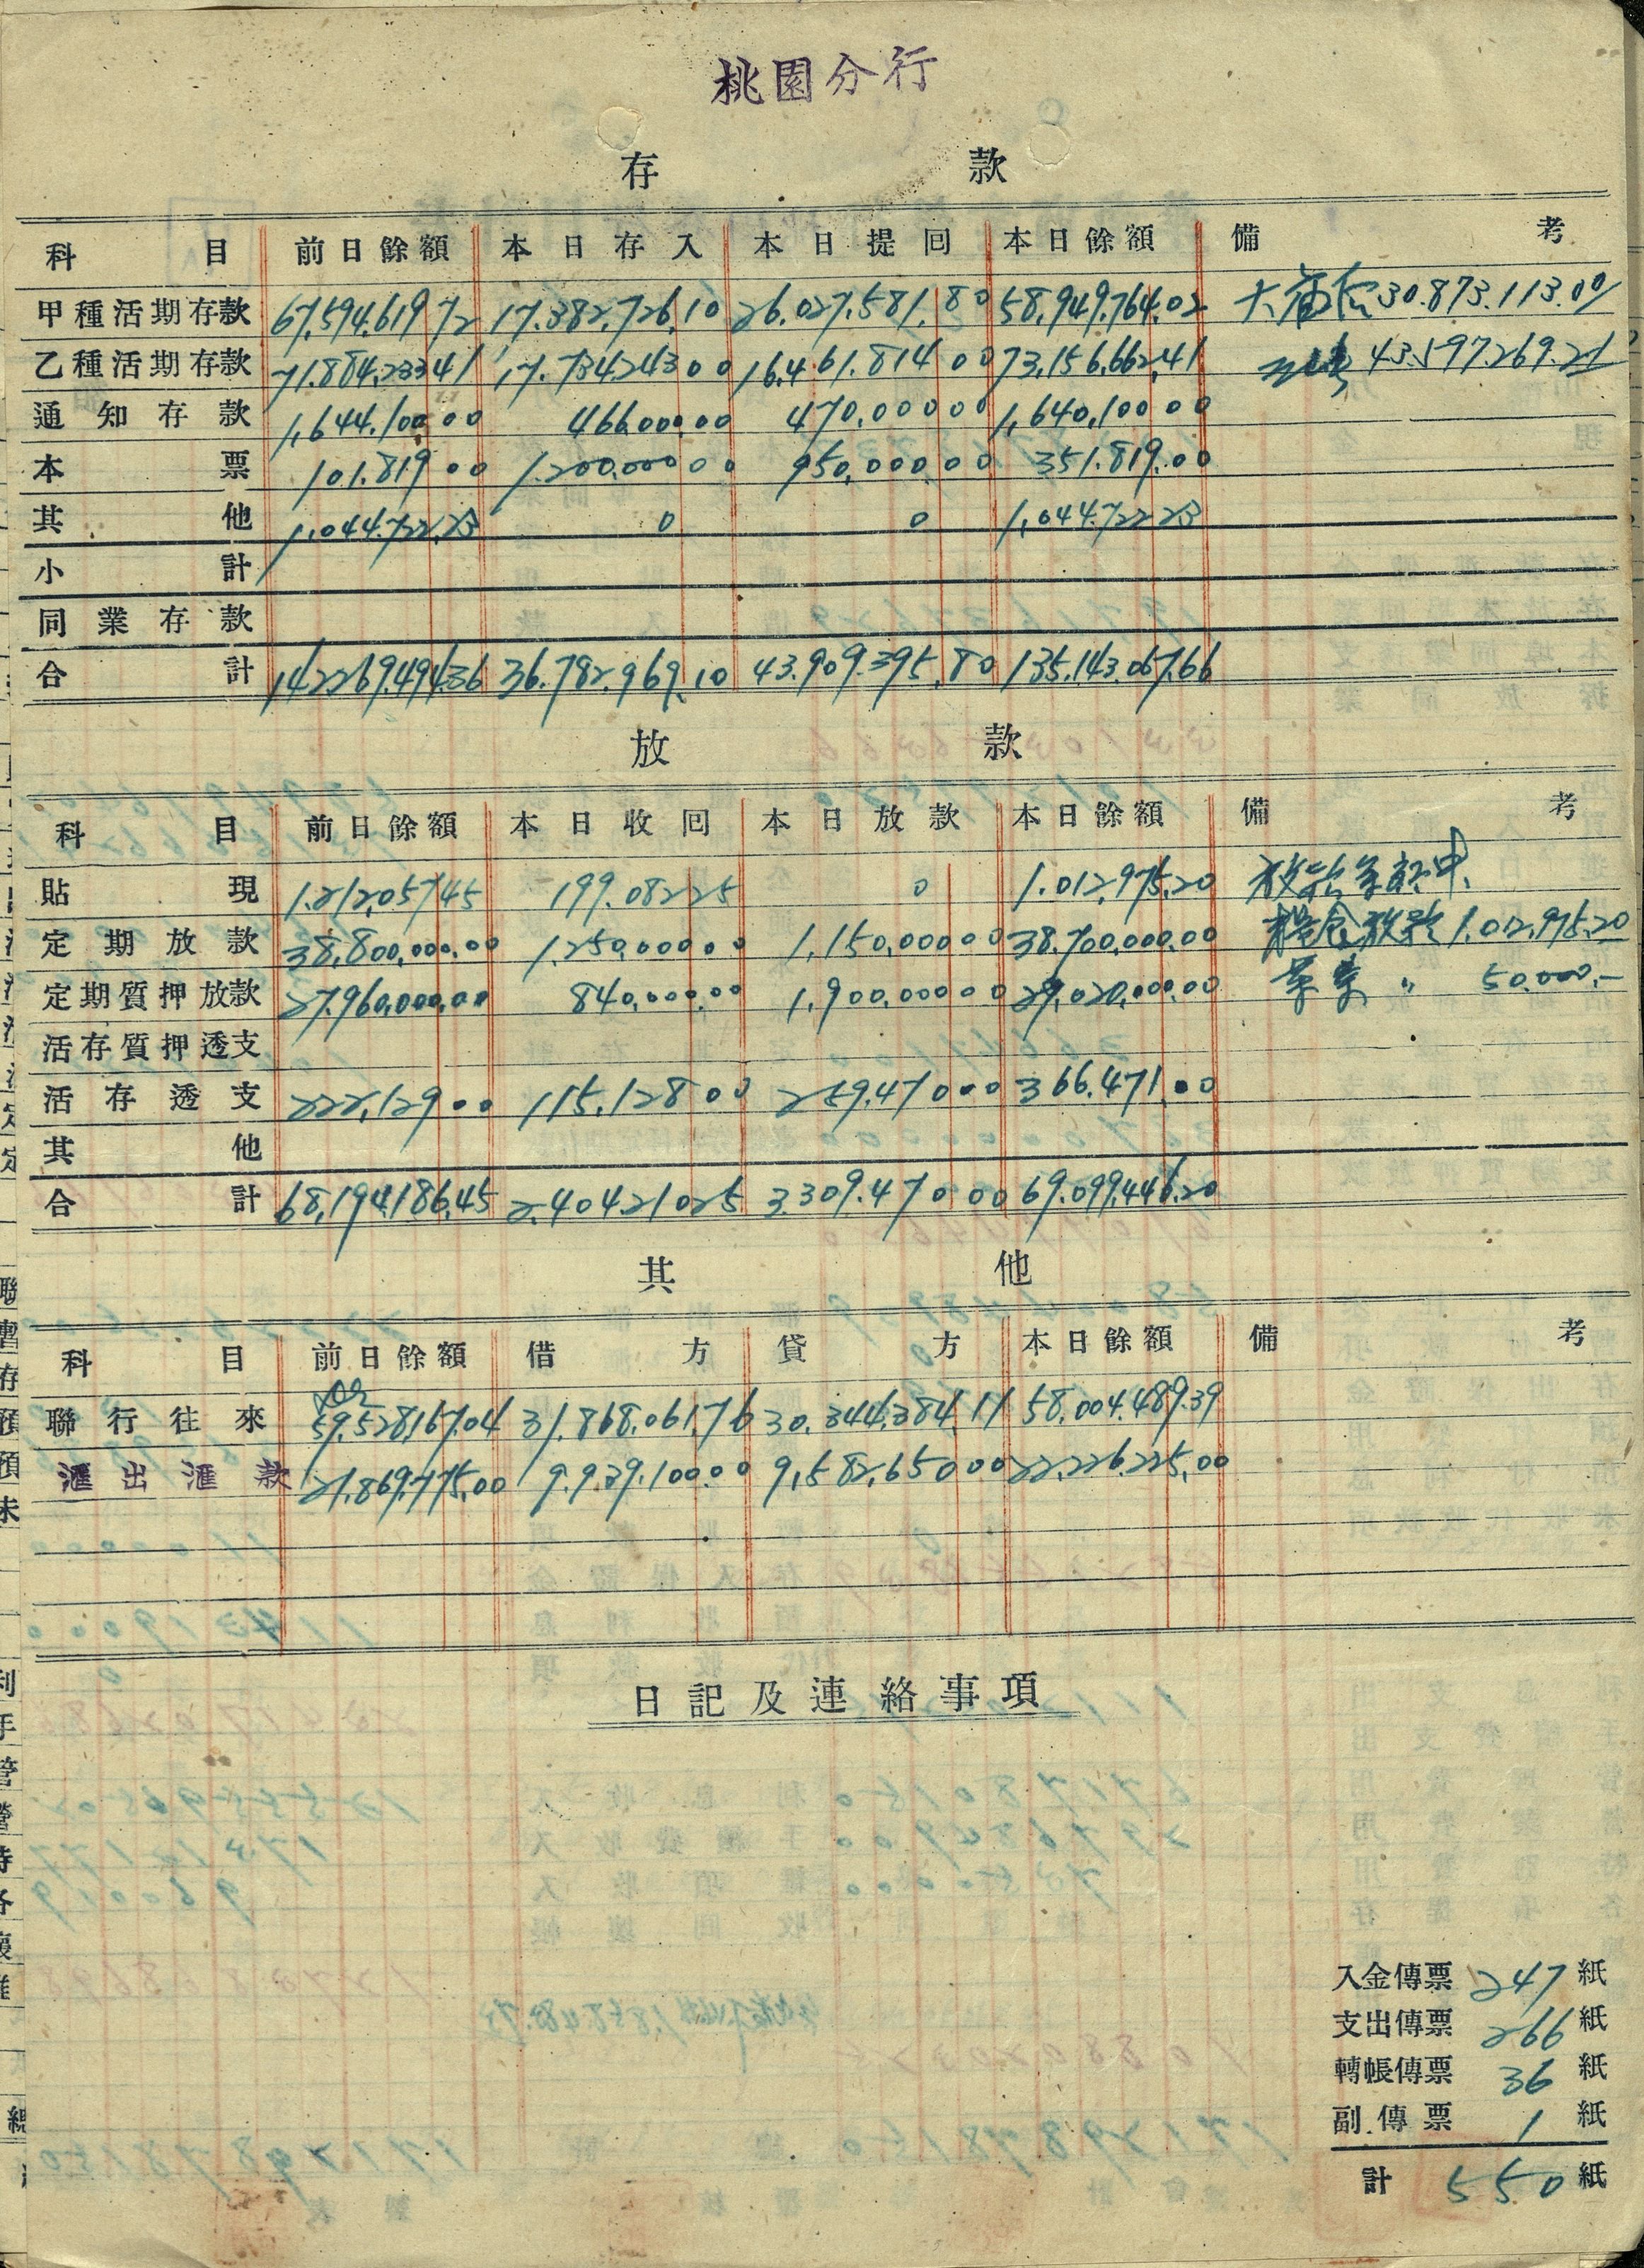 桃園分行
存 款
科目 前日餘額 本日存入 本日提回 本日餘額 備考
甲種活期存款 67,594,619.72 17.382,726.10 26.027,581.80 58,949,764.02 30.873.113.01
乙種活期存款 71.884,233.41 17.734,243.00 16,461.814.00 73,156,662.41 43.597.269.21
通知存款 1,644,100.00 466,000.00 470,000.00 1,640,100.00
本票 101.819.00 1.200,000.00 950,000.00 351.819.00
其他 1,044,722.23 0 0 1,044,722.23
小計
同業存款
合計 142,269,494.36 36.782.969.10 43.909.395.80 135.143.067.66
放 款
科目 前日餘額 本日收回 本日放款 本日餘額 備考
貼現 1.212,057.45 199.082.25 0 1.012,975.20 放款年部中
定期放款 38,800,000.00 1.250,000.00 1,150,000.00 38.700,000.00 糧食放款 1.012,975.20
定期質押放款 27,960,000.00 840,000.00 1,900,000.00 29,020,000.00 〃 50.000.-
活存質押透支
活存透支 222,129.00 115,128.00 259,470.00 366.471.00
其他
合計 68,194,186.45 2,404,210.25 3,309,470.00 69.099,446.20
其 他
科目 前日餘額 借方 貸方 本日餘額 備考
聯行往來 59,528,167.04 31.868.061.76 30.344,384.11 58.004.489.39
滙出滙款 21,869,775.00 9.939.100.00 9,582,650.00 22.226.225.00
日記及連絡事項
入金傳票 247 紙
支出傳票 266 紙
轉帳傳票 36 紙
副傳票 1 紙
計 550 紙